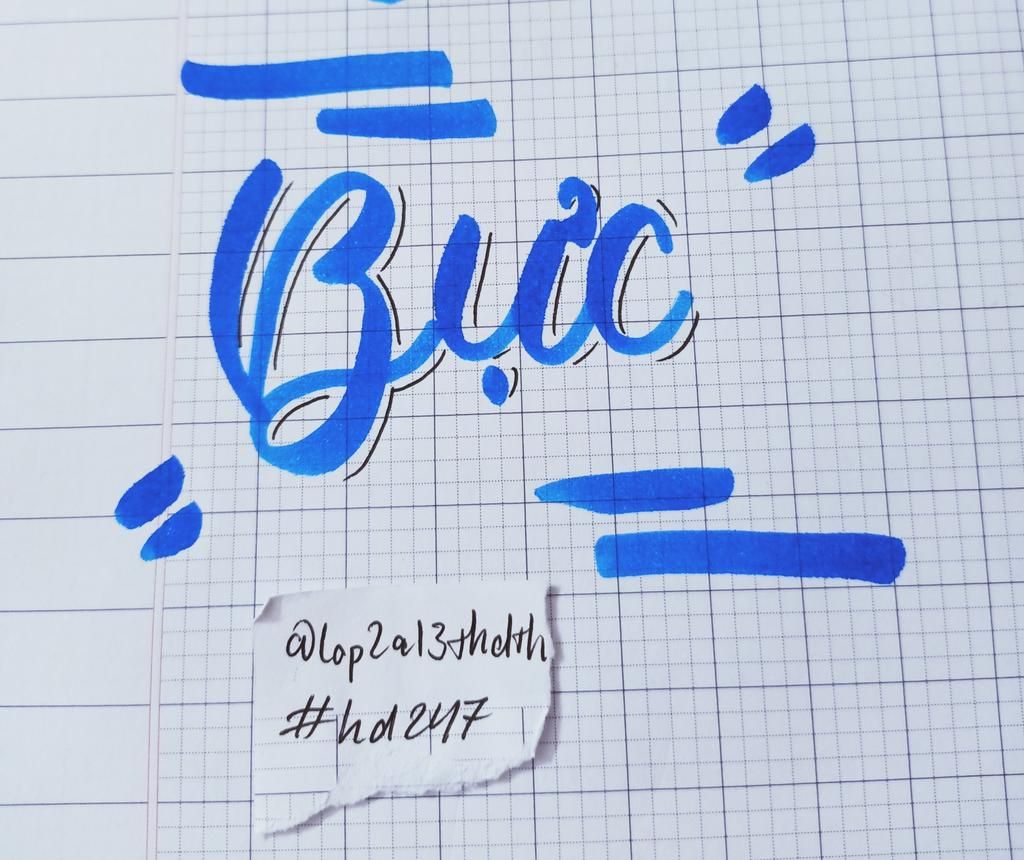 Bực
@lop2a13thdth
#hd247